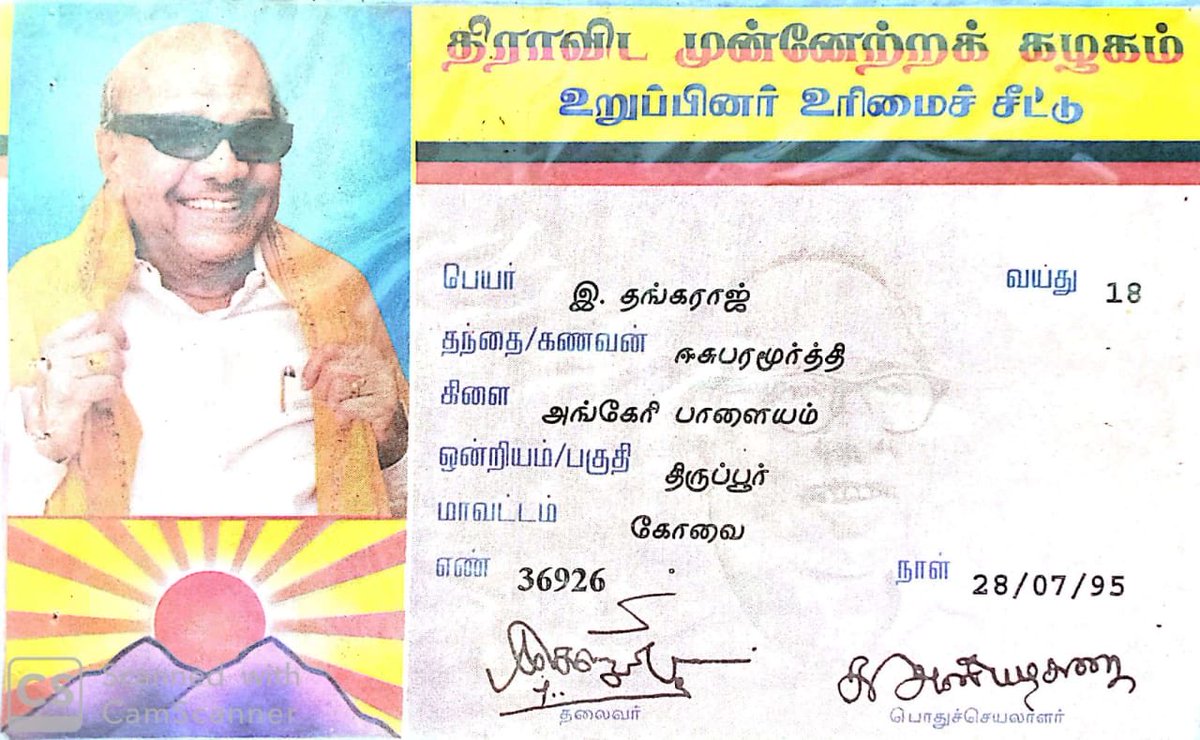 திராவிட முன்னேற்றக் கழகம்
உறுப்பினர் உரிமைச் சீட்டு
பெயர் இ. தங்கராஜ் வய்து 18
தந்தை/கணவன் ஈசுபரமூர்த்தி
கிளை அங்கேரி பாளையம்
ஒன்றியம்/பகுதி திருப்பூர்
மாவட்டம் கோவை
எண் 36926 நாள் 28/07/95
தலைவர் பொதுச்செயலாளர்
CS Scanned with
CamScanner